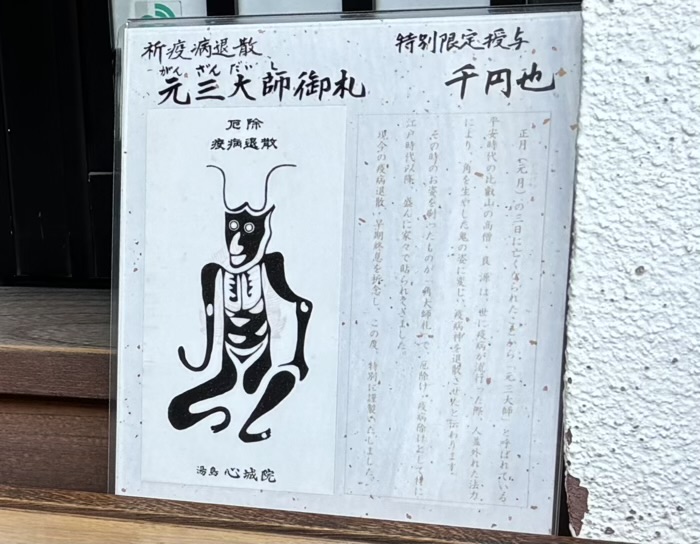 祈疫病退散
特別限定授与
がんざんだいし
元三大師御札
千円也
厄除
疫病退散
湯島 心城院
正月(元月)の三日に亡くなられたことから「元三大師」と呼ばれている
平安時代の比叡山の高僧・良源は、世に疫病が流行した際、人並外れた法力
により、角を生やした鬼の姿に変じ、疫病神を退散させたと伝わります。
その時のお姿を刷ったものが「角大師札」で、厄除け・疫病除けとして特に
江戸時代以降、盛んに家々で貼られてきました。
現今の疫病退散・早期終息を祈念し、この度、特別に謹製いたしました。